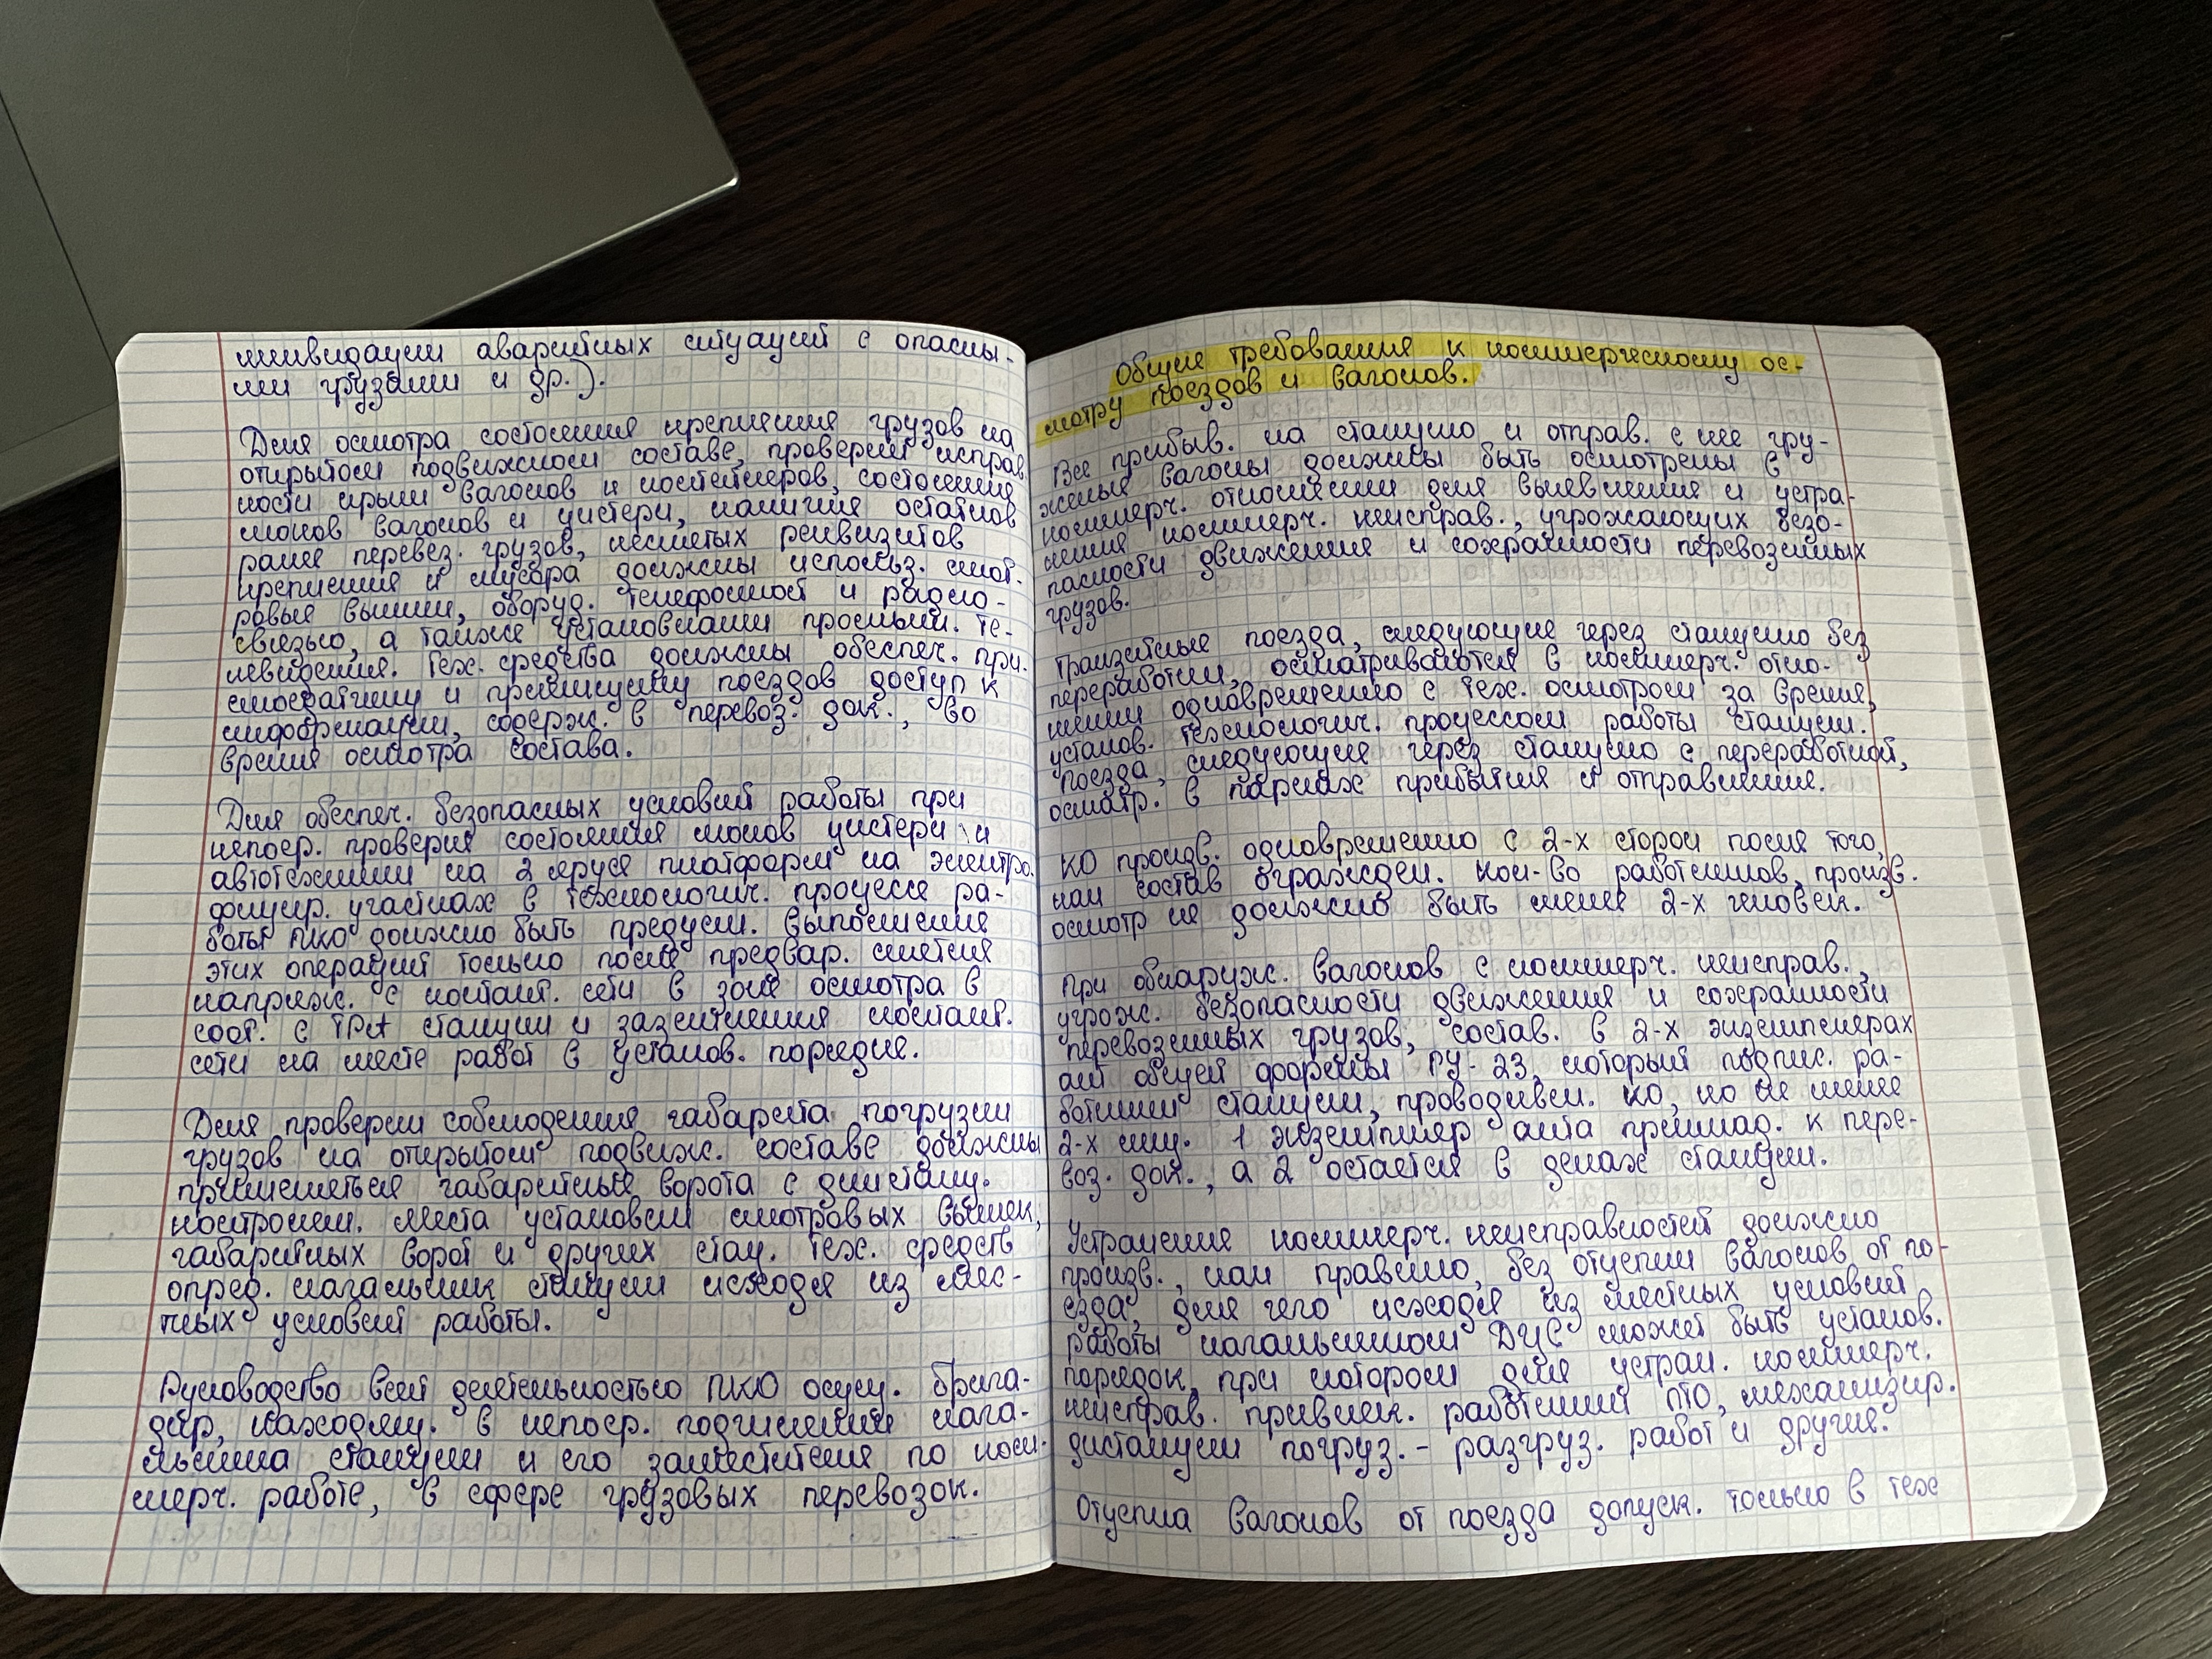 ликвидации аварийных ситуаций с опасны-
ми грузами и др.).
Для осмотра состояния крепления грузов на
открытом подвижном составе, проверки исправ
ности крыш вагонов и контейнеров, состояния
люков вагонов и цистерн, наличия остатков
ранее перевез. грузов, неснятых реквизитов
крепления и мусора должны использ. смот-
ровые вышки, оборуд. телефонной и радио-
связью, а также установками промышл. те-
левидения. Тех. средства должны обеспеч. при-
емосдатчику и приемщику поездов доступ к
информации, содерж. в перевоз. док., во
время осмотра состава.
Для обеспеч. безопасных условий работы при
непоср. проверке состояния люков цистерн и
автотехники на 2 ярусе платформ на электро-
фицир. участках в технологич. процессе ра-
боты ПКО должно быть предусм. выполнение
этих операций только после предвар. снятия
напряж. с контакт. сети в зоне осмотра в
соот. с ТРА станции и заземления контакт.
сети на месте работ в установ. порядке.
Для проверки соблюдения габарита погрузки
грузов на открытом подвиж. составе должны
применяться габаритные ворота с дистанц.
контролем. Места установки смотровых вышек,
габаритных ворот и других стац. тех. средств
опред. начальник станции исходя из мес-
тных условий работы.
Руководство всей деятельностью ПКО осущ. брига-
дир, находящ. в непоср. подчинении нача-
льника станции и его заместителя по ком-
мерч. работе, в сфере грузовых перевозок.
Общие требования к коммерческому ос-
мотру поездов и вагонов.
Все прибыв. на станцию и отправ. с нее гру-
женые вагоны должны быть осмотрены в
коммерч. отношении для выявления и устра-
нения коммерч. неисправ., угрожающих безо-
пасности движения и сохранности перевозимых
грузов.
Транзитные поезда, следующие через станцию без
переработки, осматриваются в коммерч. отно-
шении одновременно с тех. осмотром за время,
установ. технологич. процессом работы станции.
Поезда, следующие через станцию с переработкой,
осматр. в парках прибытия и отправления.
КО произв. одновременно с 2-х сторон после того,
как состав огражден. Кол-во работников, произв.
осмотр не должно быть менее 2-х человек.
При обнаруж. вагонов с коммерч. неисправ.,
угрож. безопасности движения и сохранности
перевозимых грузов, состав. в 2-х экземплярах
акт общей формы ГУ-23, который подпис. ра-
ботники станции, проводивш. КО, но не менее
2-х лиц. 1 экземпляр акта приклад. к пере-
воз. док., а 2 остается в делах станции.
Устранение коммерч. неисправностей должно
произв., как правило, без отцепки вагонов от по-
езда, для чего исходя из местных условий
работы начальником ДЦС может быть установ.
порядок, при котором для устран. коммерч.
неисправ. привлек. работники ПТО, механизир.
дистанции погруз.-разгруз. работ и другие.
Отцепка вагонов от поезда допуск. только в тех